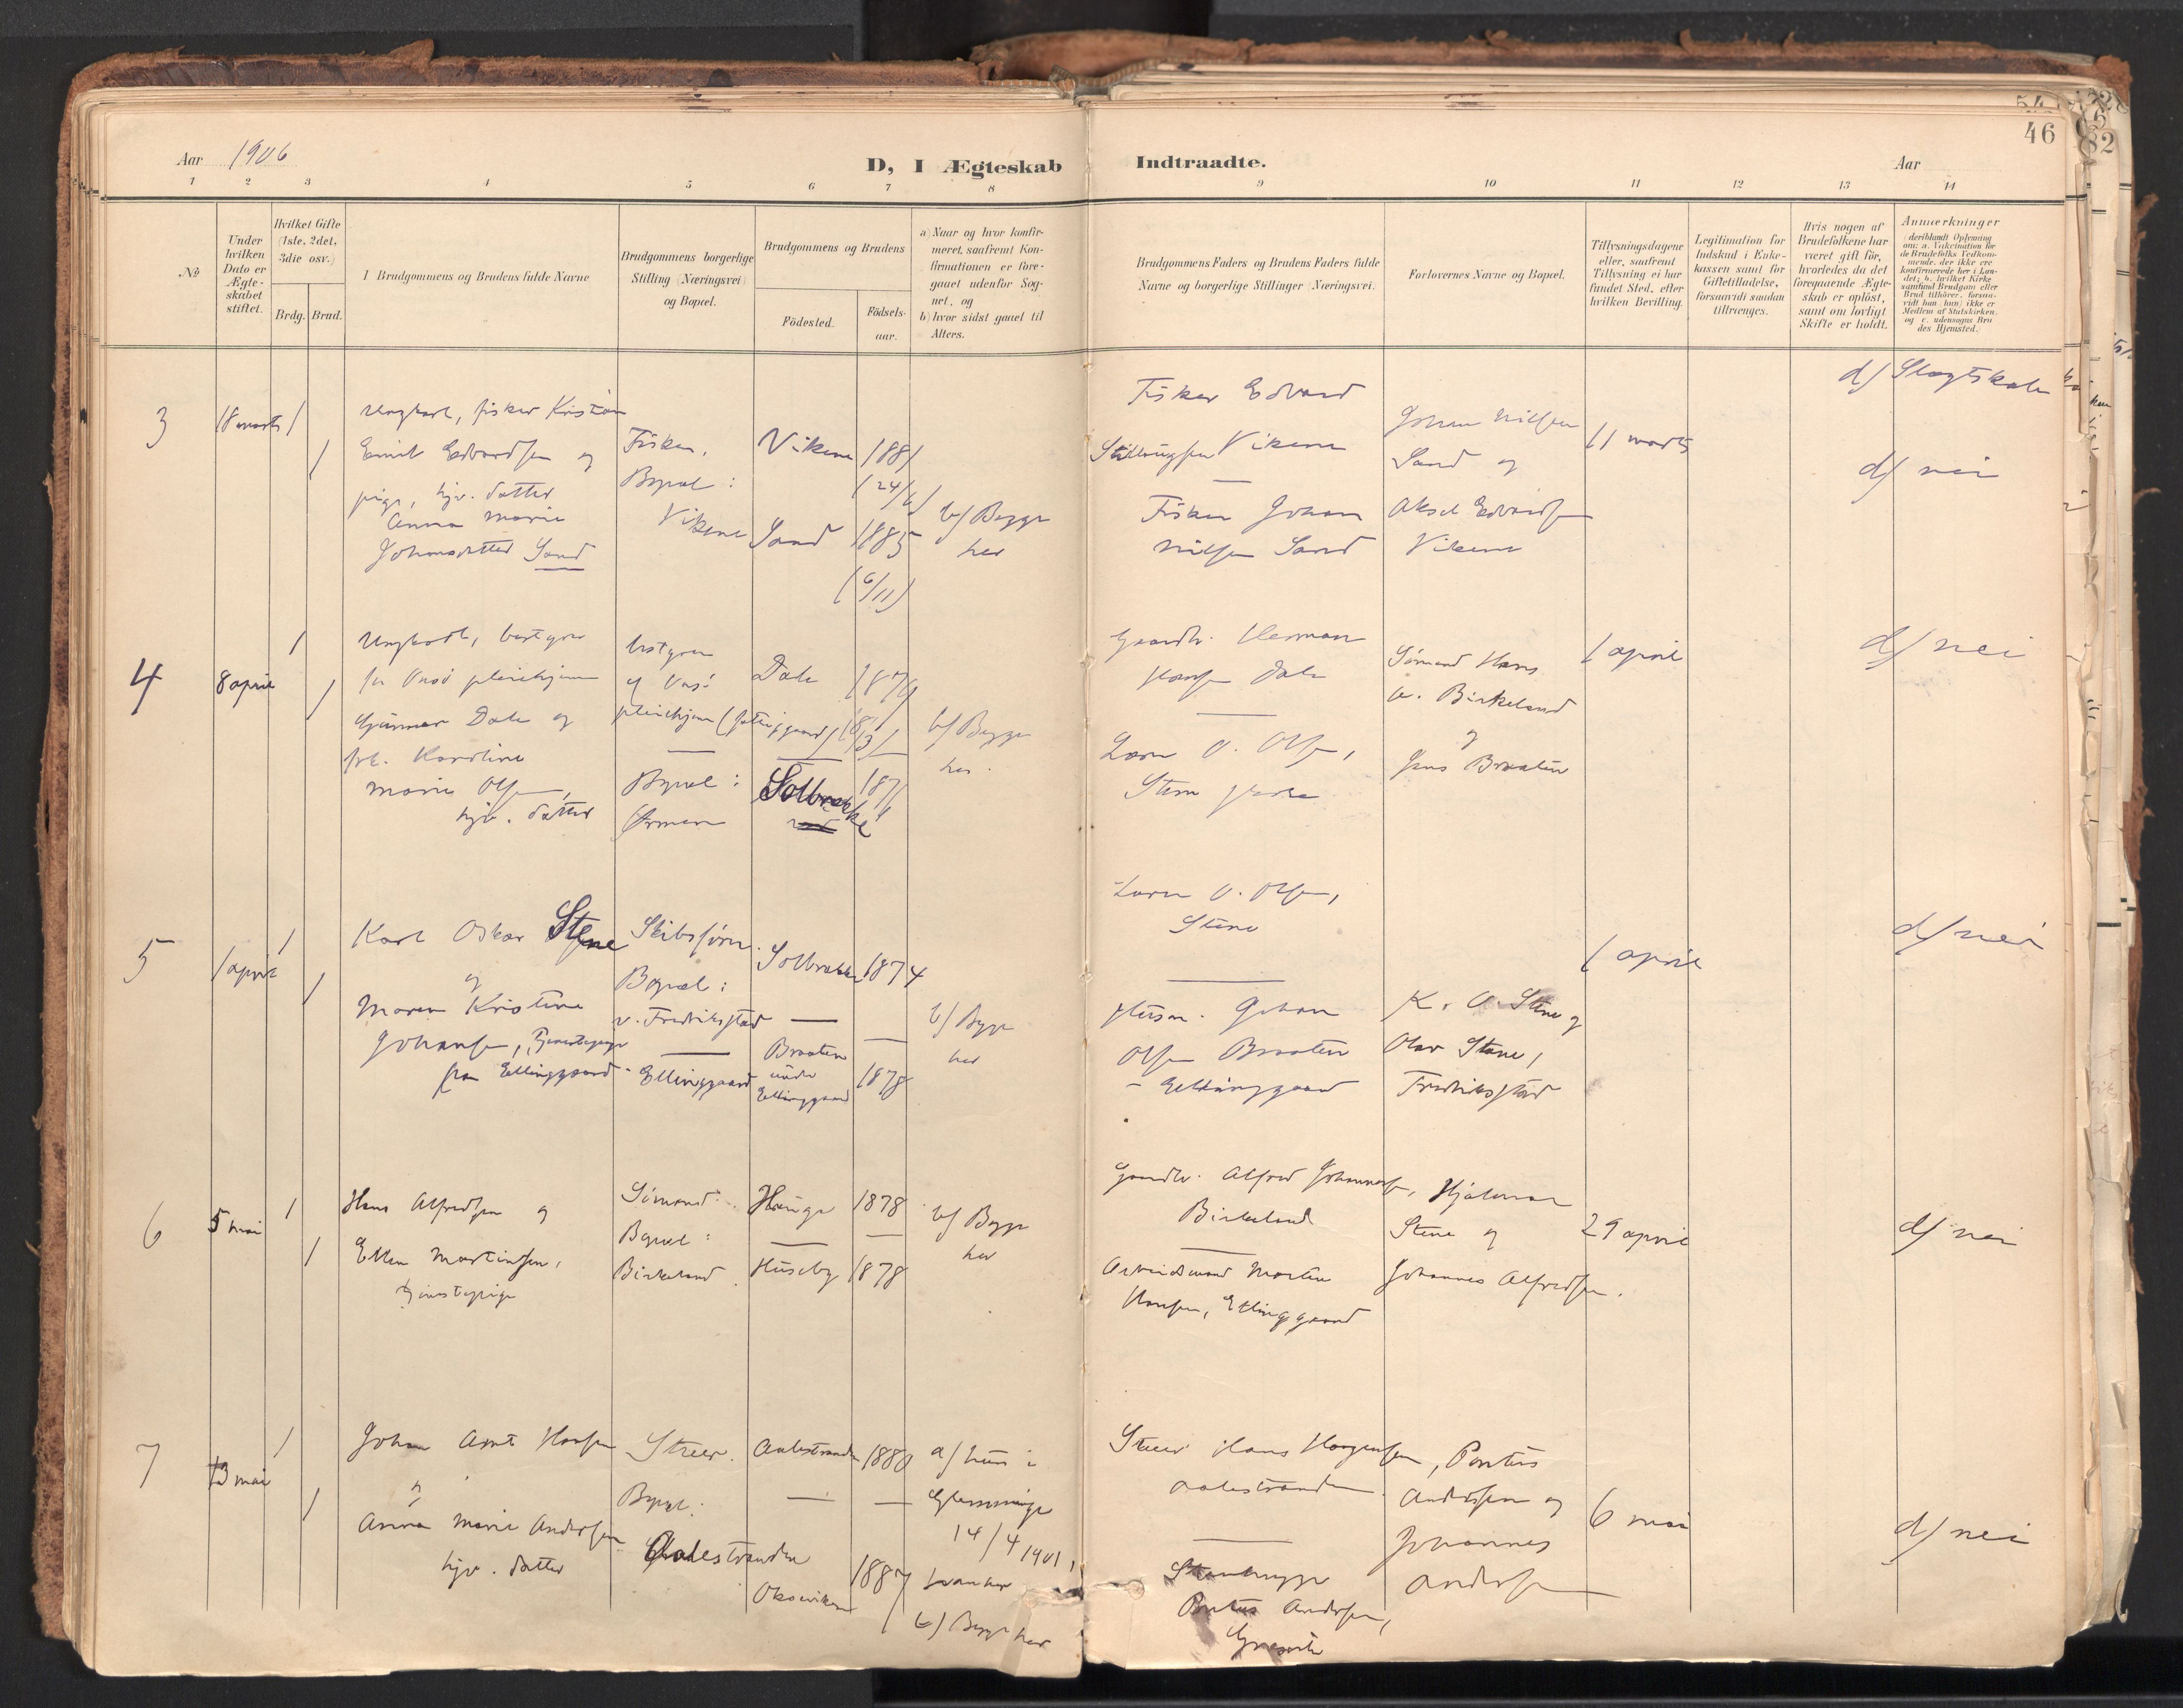 Aar 1906
D, I Ægteskab Indtraadte.
Aar
46
1 2 3 4 5 6 7 8 9 10 11 12 13 14
No
Under hvilken Dato er Ægte-skabet stiftet.
Hvilket Gifte (1ste, 2det, 3die osv.)
Brdg. Brud.
I Brudgommens og Brudens fulde Navne
Brudgommens borgerlige Stilling (Næringsvei) og Bopæl.
Brudgommens og Brudens
Fødested.
Fødsels-aar.
a) Naar og hvor konfir-meret, saafremt Kon-firmationen er fore-gaaet udenfor Sog-net, og
b) hvor sidst gaaet til Alters.
Brudgommens Faders og Brudens Faders fulde Navne og borgerlige Stillinger (Næringsvei).
Forlovernes Navne og Bopæl.
Tillysningsdagene eller, saafremt Tillysning ei har fundet Sted, efter hvilken Bevilling.
Legitimation for Indskud i Enke-kassen samt for Giftetilladelse, forsaavidt saadan tiltrænges.
Hvis nogen af Brudefolkene har været gift før, hvorledes da det foregaaende Ægte-skab er opløst, samt om lovligt Skifte er holdt.
Anmærkninger
(deriblandt Oplysning om: a. Vakcination for de Brudefolks Vedkom-mende, der ikke ere konfirmerede her i Lan-det; b. hvilket Kirke-samfund Brudgom eller Brud tilhører, forsaa-vidt han (hun) ikke er Medlem af Statskirken, og c. udensogns Bru-des Hjemsted.)
3
18 marts
1
1
Ungkarl, fisker Kristian
Emil Edvardsen og
pige, hjv. datter
Anna Marie
Johansdatter Sand
Fisker,
Bopæl:
Vikene
Vikene 1881
(24/6)
Sand 1885
(6/11)
b/ Begge
her
Fisker Edvard
Vikene
Fisker Johan
Nilsen Sand
Johan Nilsen
Sand og
Aksel Edvardsen
Vikene
11 marts
d/ Slegtskab
d/ nei
4
8 april
1
1
Ungkarl, bestyrer
for Onsø pleiehjem
Gunnar Dale og
frk. Karoline
Marie Olsen,
hjv. datter
bestyrer
af Onsø
pleiehjem (fattiggaard)
Bopæl:
Ørmen
Dale
Solbrække
b/ Begge
her.
Gaardbr. Herman
Hansen Dale
Lars O. Olsen,
Stene
Sömand Hans
A. Birkeland
og
Jens Braaten
1 april
d/ nei
5
1 april
1
1
Karl Oskar Stene
og
Maren Kristine
Johansen, Tjenestepige
fra Ellinggaard
Skibsförer.
Bopæl:
v. Fredriksstad
Ellinggaard
Solbrække 1874
Braaten
under
Ellinggaard
1878
b/ Begge
her
Lars O. Olsen,
Stene
Husm. Johan
Olsen Braaten
- Ellinggaard
K. O. Stene og
Olav Stene,
Fredriksstad
1 april
d/ nei
6
5 mai
1
1
Hans Alfredsen og
Ellen Martinsen,
tjenestepige
Sömand.
Bopæl:
Birkeland
Hauge 1878
Huseby 1878
b/ Begge
her
Gaardbr. Alfred Johannesen,
Birkeland
Arbeidsmand Martin
Hansen, Ellinggaard
Hjalmar
Stene og
Johannes Alfredsen.
29 april
d/ nei
7
13 mai
1
1
Johan Arnt Hansen
og
Anna Marie Andersen
hjv. datter
Bopæl:
Aalestranden
Aalestranden 1880
Oksviken
1887
a/ han i
Glemminge
14/4 1901,
hun her
b/ Begge her
Hans Haagensen,
Aalestranden
Stenhugger
Pontus Andersen,
Pontus
Andersen og
Johannes
Andersen
6 mai
d/ nei